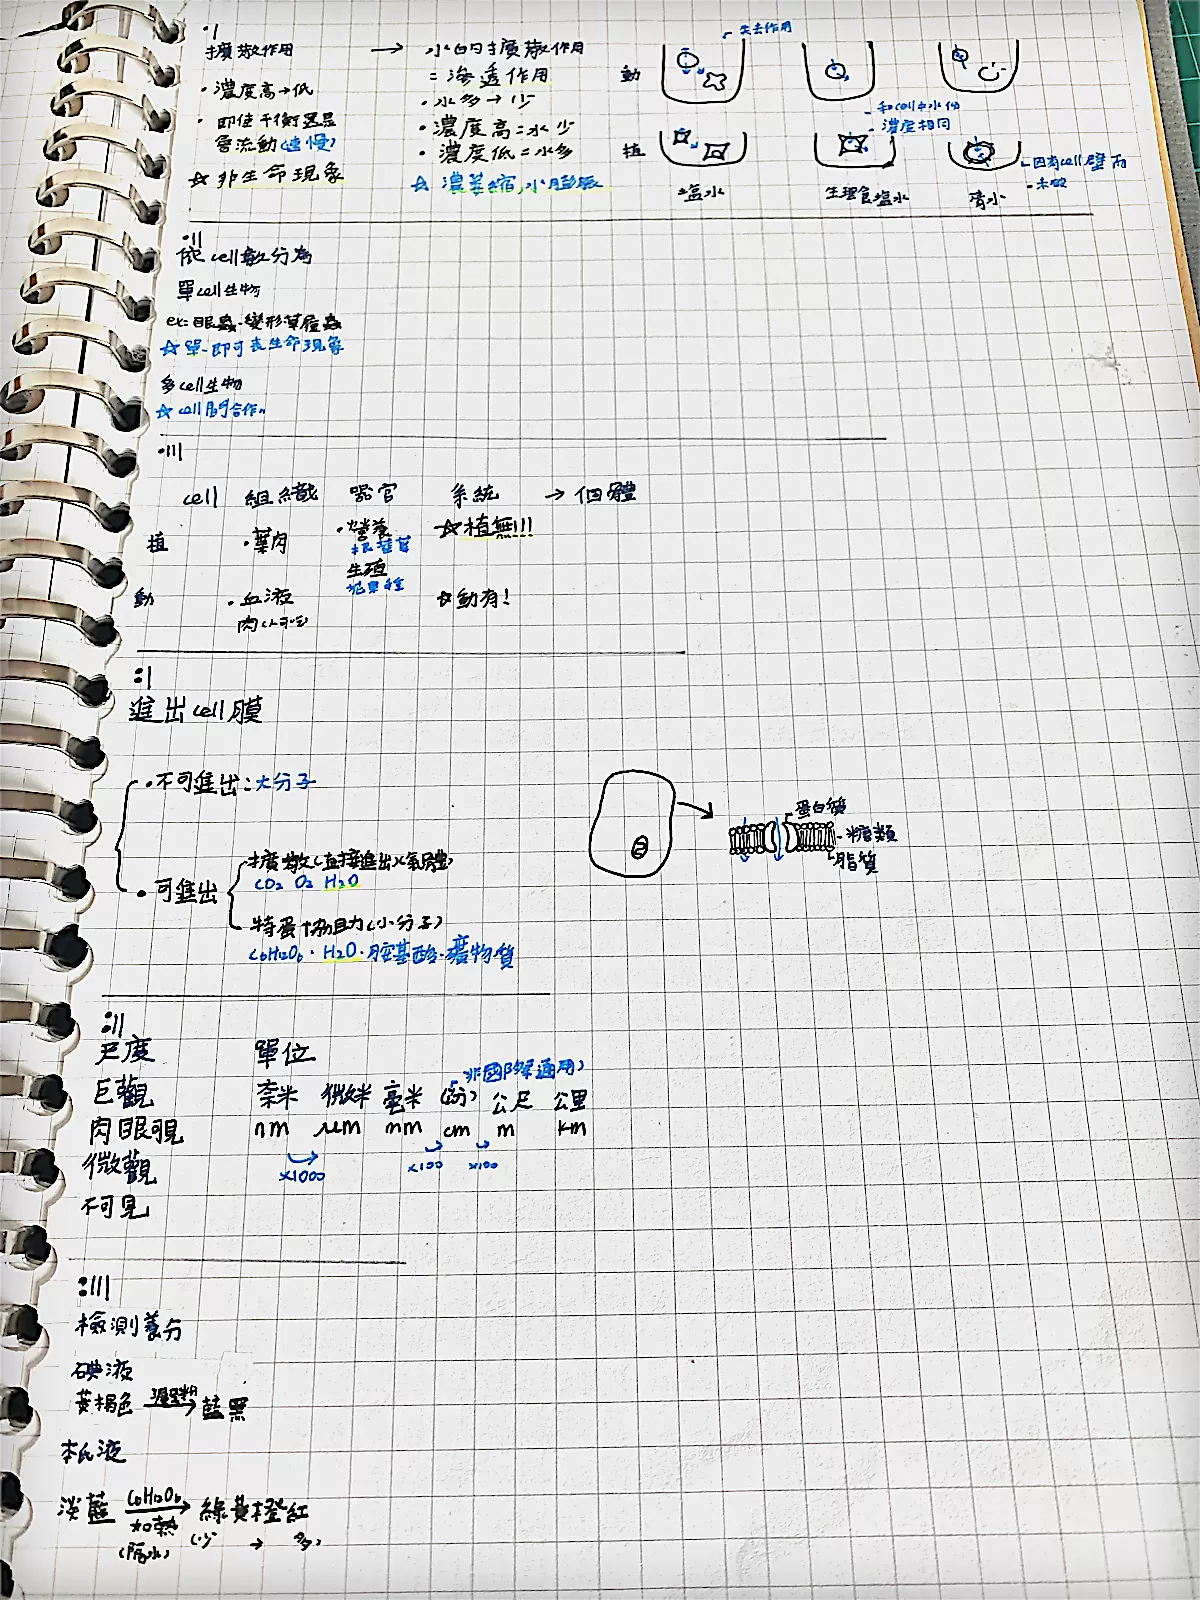 擴散作用 → 水的擴散作用
= 滲透作用
・濃度高→低
・即使平衡還是
會流動(速慢)
☆非生命現象
・水多→少
・濃度高=水少
・濃度低=水多
☆濃萎縮,水膨脹
失去作用
動
和cell中水份
濃度相同
植
因有cell壁而
未破
塩水 生理食塩水 清水
依cell數分為
單cell生物
ex: 眼蟲.變形草履蟲
☆單.即可表生命現象
多cell生物
☆cell間合作
cell 組織 器官 系統 → 個體
植 ・葉肉 ・營養 ☆植無!!!
根莖葉
生殖
花果種
動 ・血液 ☆動有!
進出cell膜
・不可進出:大分子
・可進出
擴散(直接進出)(氣體)
CO2 O2 H2O
特蛋協助(小分子)
C6H12O6・H2O・胺基酸・礦物質
蛋白質
糖類
脂質
尺度 單位
(非國際通用)
巨觀 奈米 微米 毫米 (公分) 公尺 公里
肉眼可見 nm μm mm cm m km
微觀 x1000 x100 x100
不可見
檢測養分
碘液
黃褐色 遇澱粉→ 藍黑
本氏液
淡藍 C6H12O6→ 綠黃橙紅
加熱 (少 → 多)
(隔水)